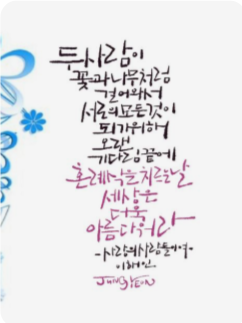 두사람이
꽃과나무처럼
걸어와서
서로의모든것이
되기위해
오랜
기다림끝에
혼례식을치르는날
세상은
더욱
아름다워라
-사랑의사람들이여-
이해인